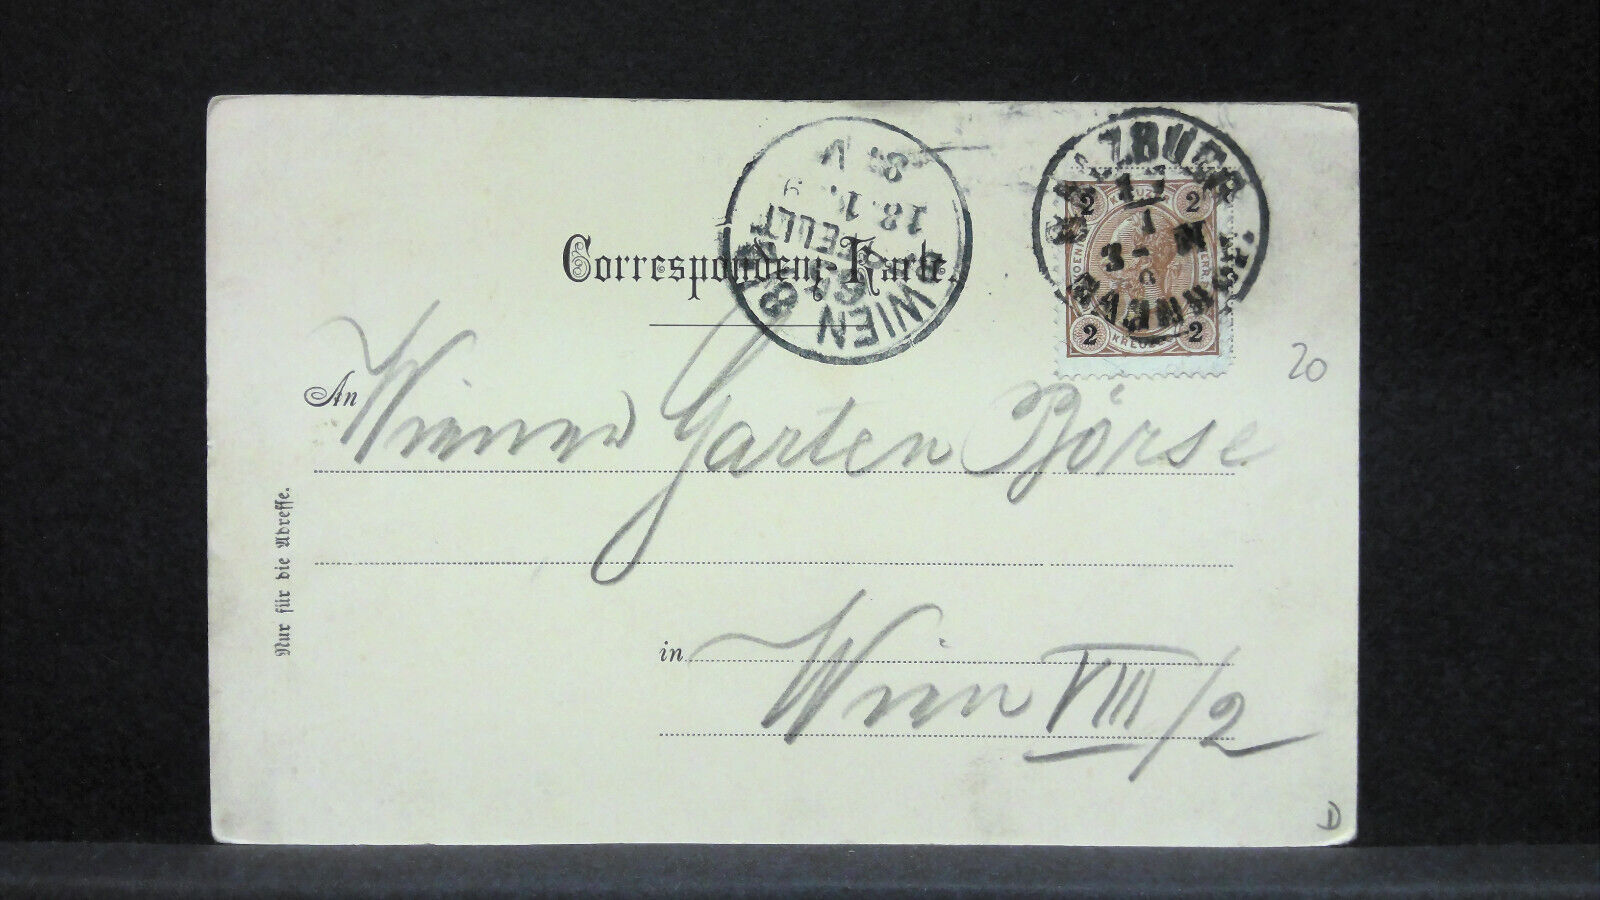 Correspondenz-Karte.
SALZBURG
17
1
3-N
BAHNHOF
WIEN 8
BESTELLT
18.1
8. V
2 KREUZER 2
2 KREUZER 2
An Wiener Garten Börse
in Wien VIII/2
Nur für die Adresse.
20
D